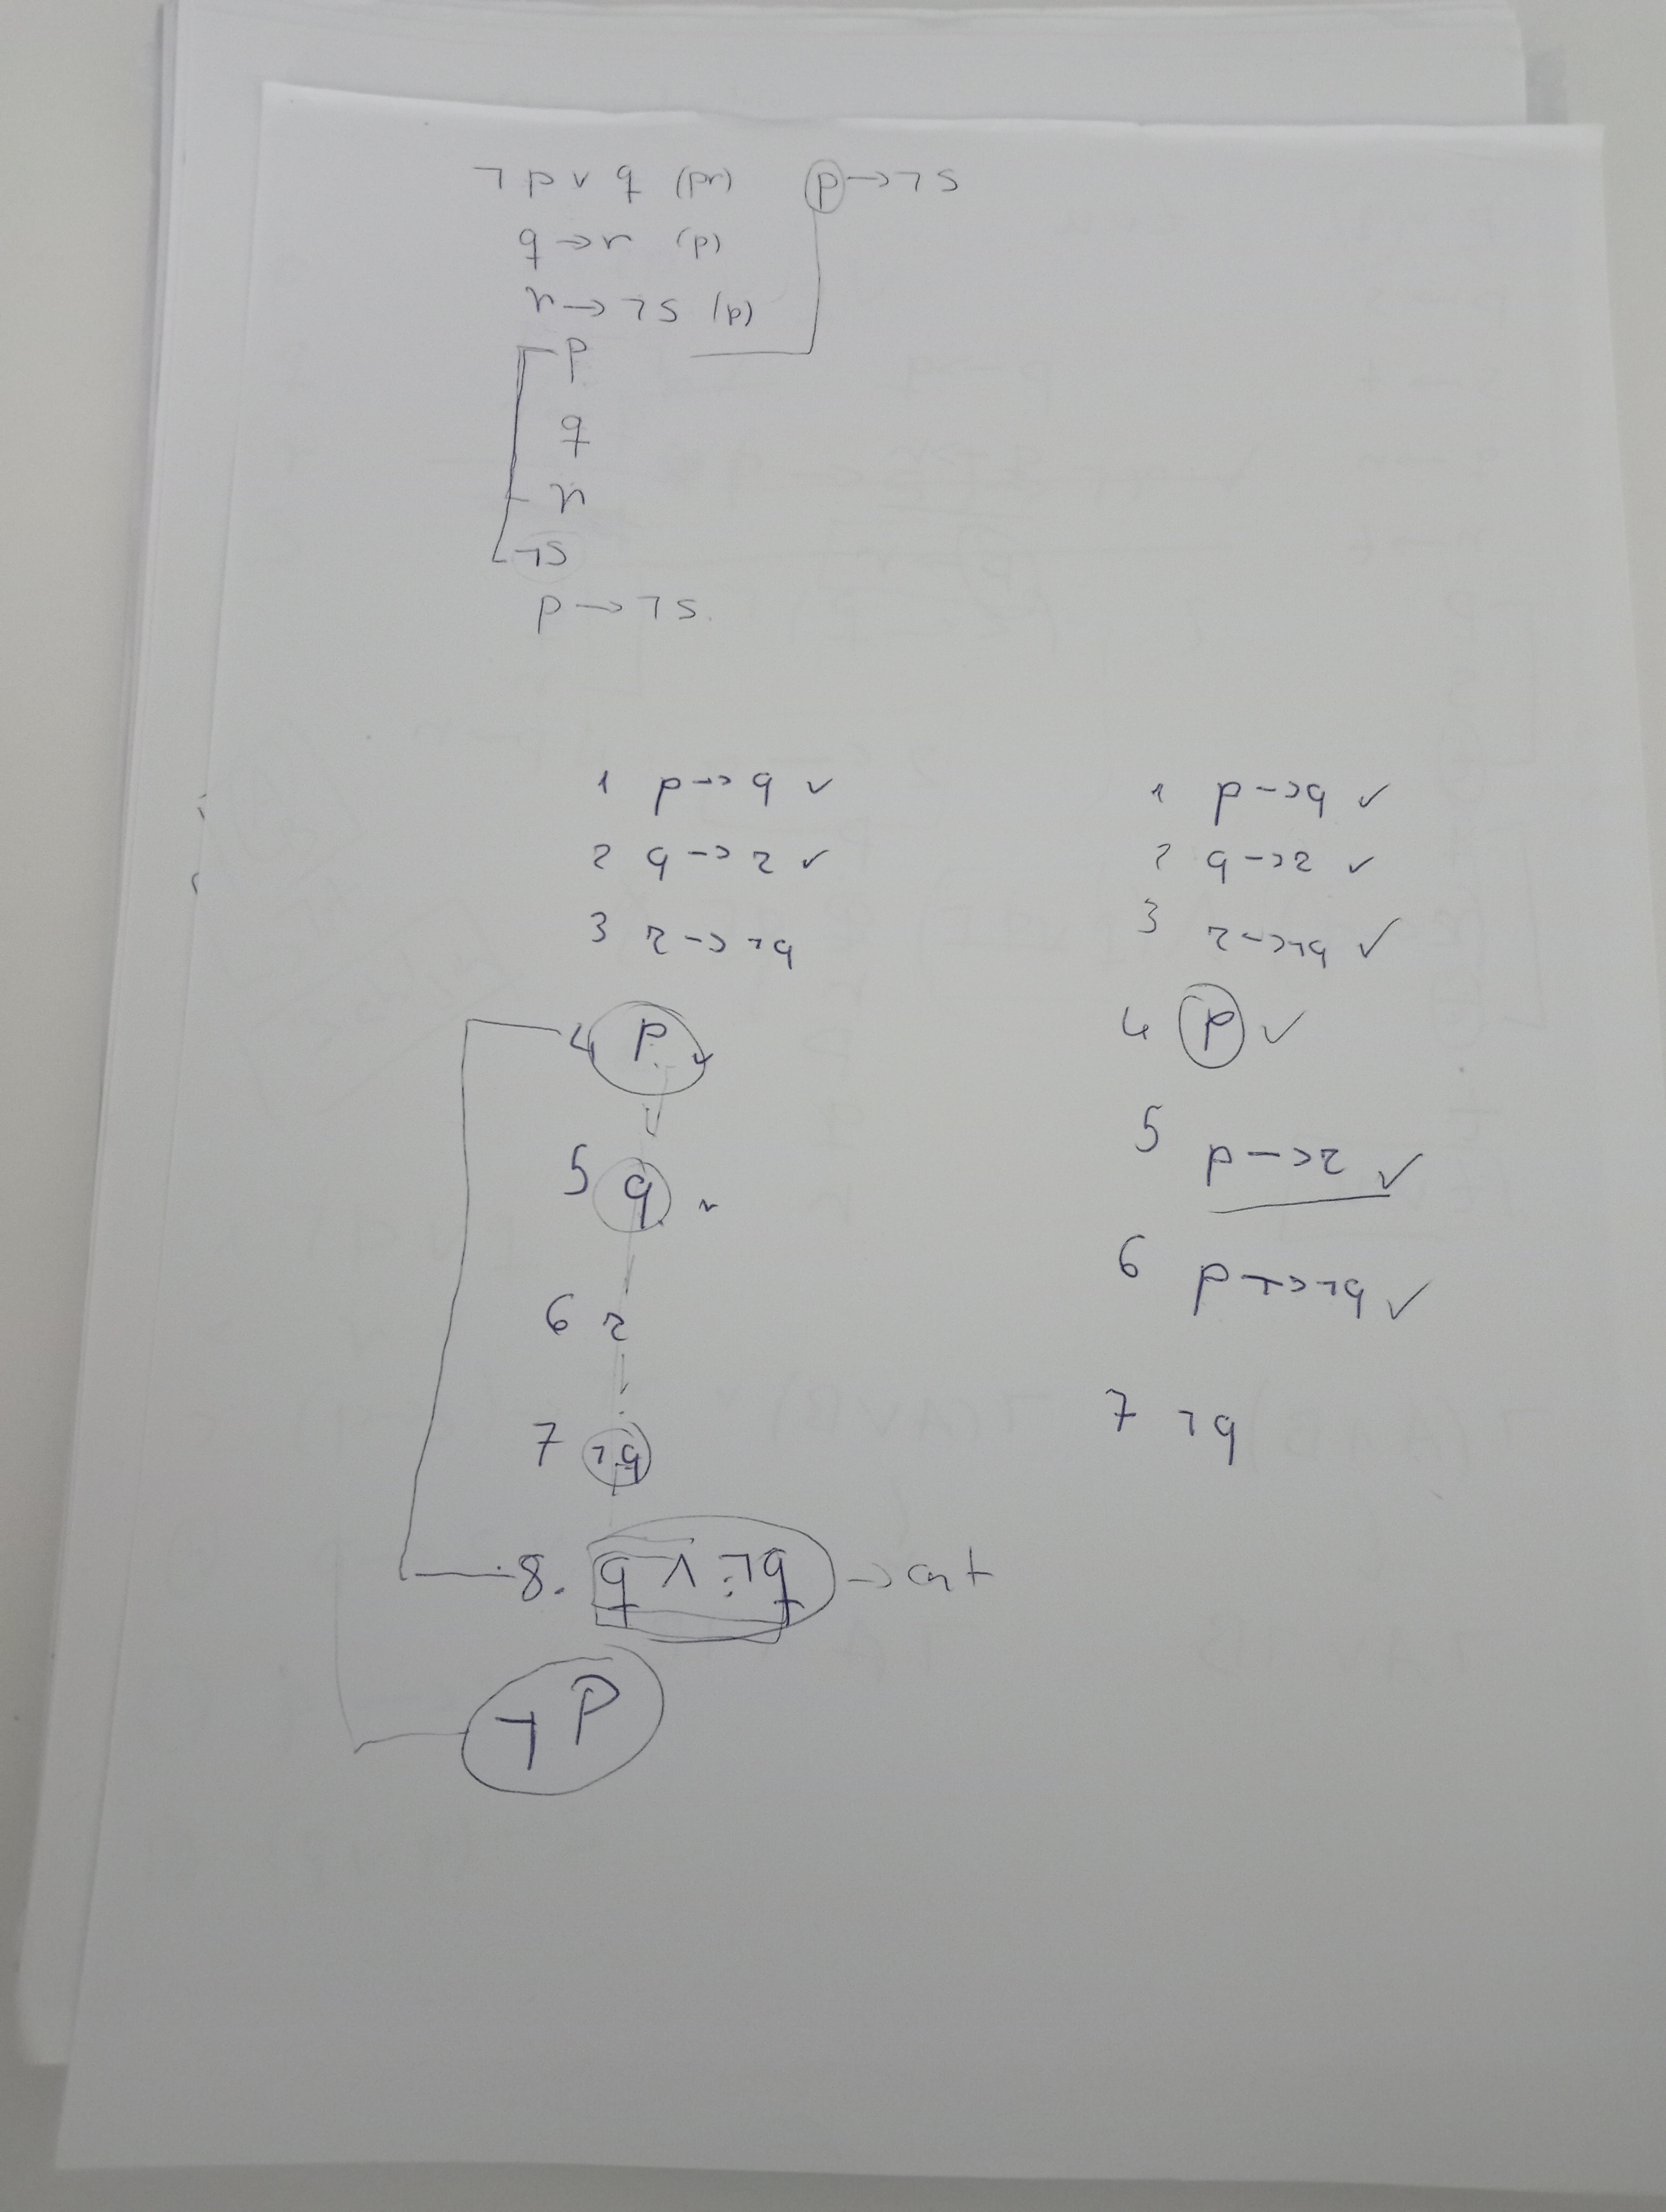 ¬ p ∨ q (pr) p → ¬ s
q → r (p)
r → ¬ s (p)
p
q
r
¬s
p → ¬ s.
1 p → q ✓
2 q → r ✓
3 r → ¬q
4 p ✓
5 q ✓
6 r
7 ¬q
8. q ∧ ¬q → cnt
¬ p
1 p → q ✓
2 q → r ✓
3 r → ¬q ✓
4 p ✓
5 p → r ✓
6 p → ¬q ✓
7 ¬q